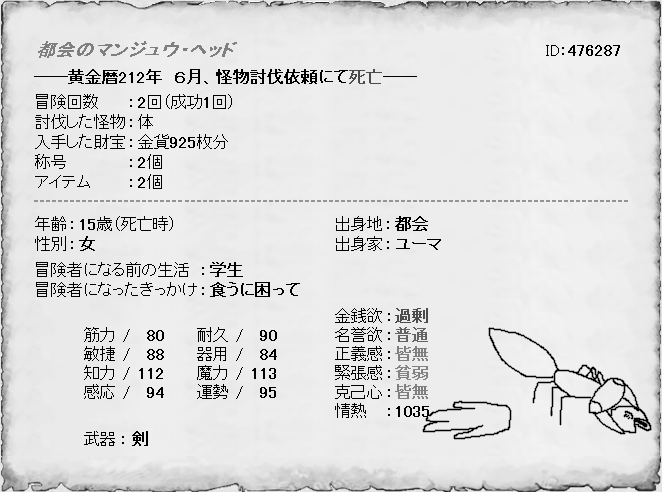 都会のマンジュウ・ヘッド ID：476287
――黄金暦212年　6月、怪物討伐依頼にて死亡――
冒険回数　：2回（成功1回）
討伐した怪物：体
入手した財宝：金貨925枚分
称号　：2個
アイテム　：2個
年齢：15歳（死亡時） 出身地：都会
性別：女 出身家：ユーマ
冒険者になる前の生活　：学生
冒険者になったきっかけ：食うに困って
金銭欲：過剰
筋力 / 80 耐久 / 90 名誉欲：普通
敏捷 / 88 器用 / 84 正義感：皆無
知力 / 112 魔力 / 113 緊張感：貧弱
感応 / 94 運勢 / 95 克己心：皆無
情熱　：1035
武器：剣